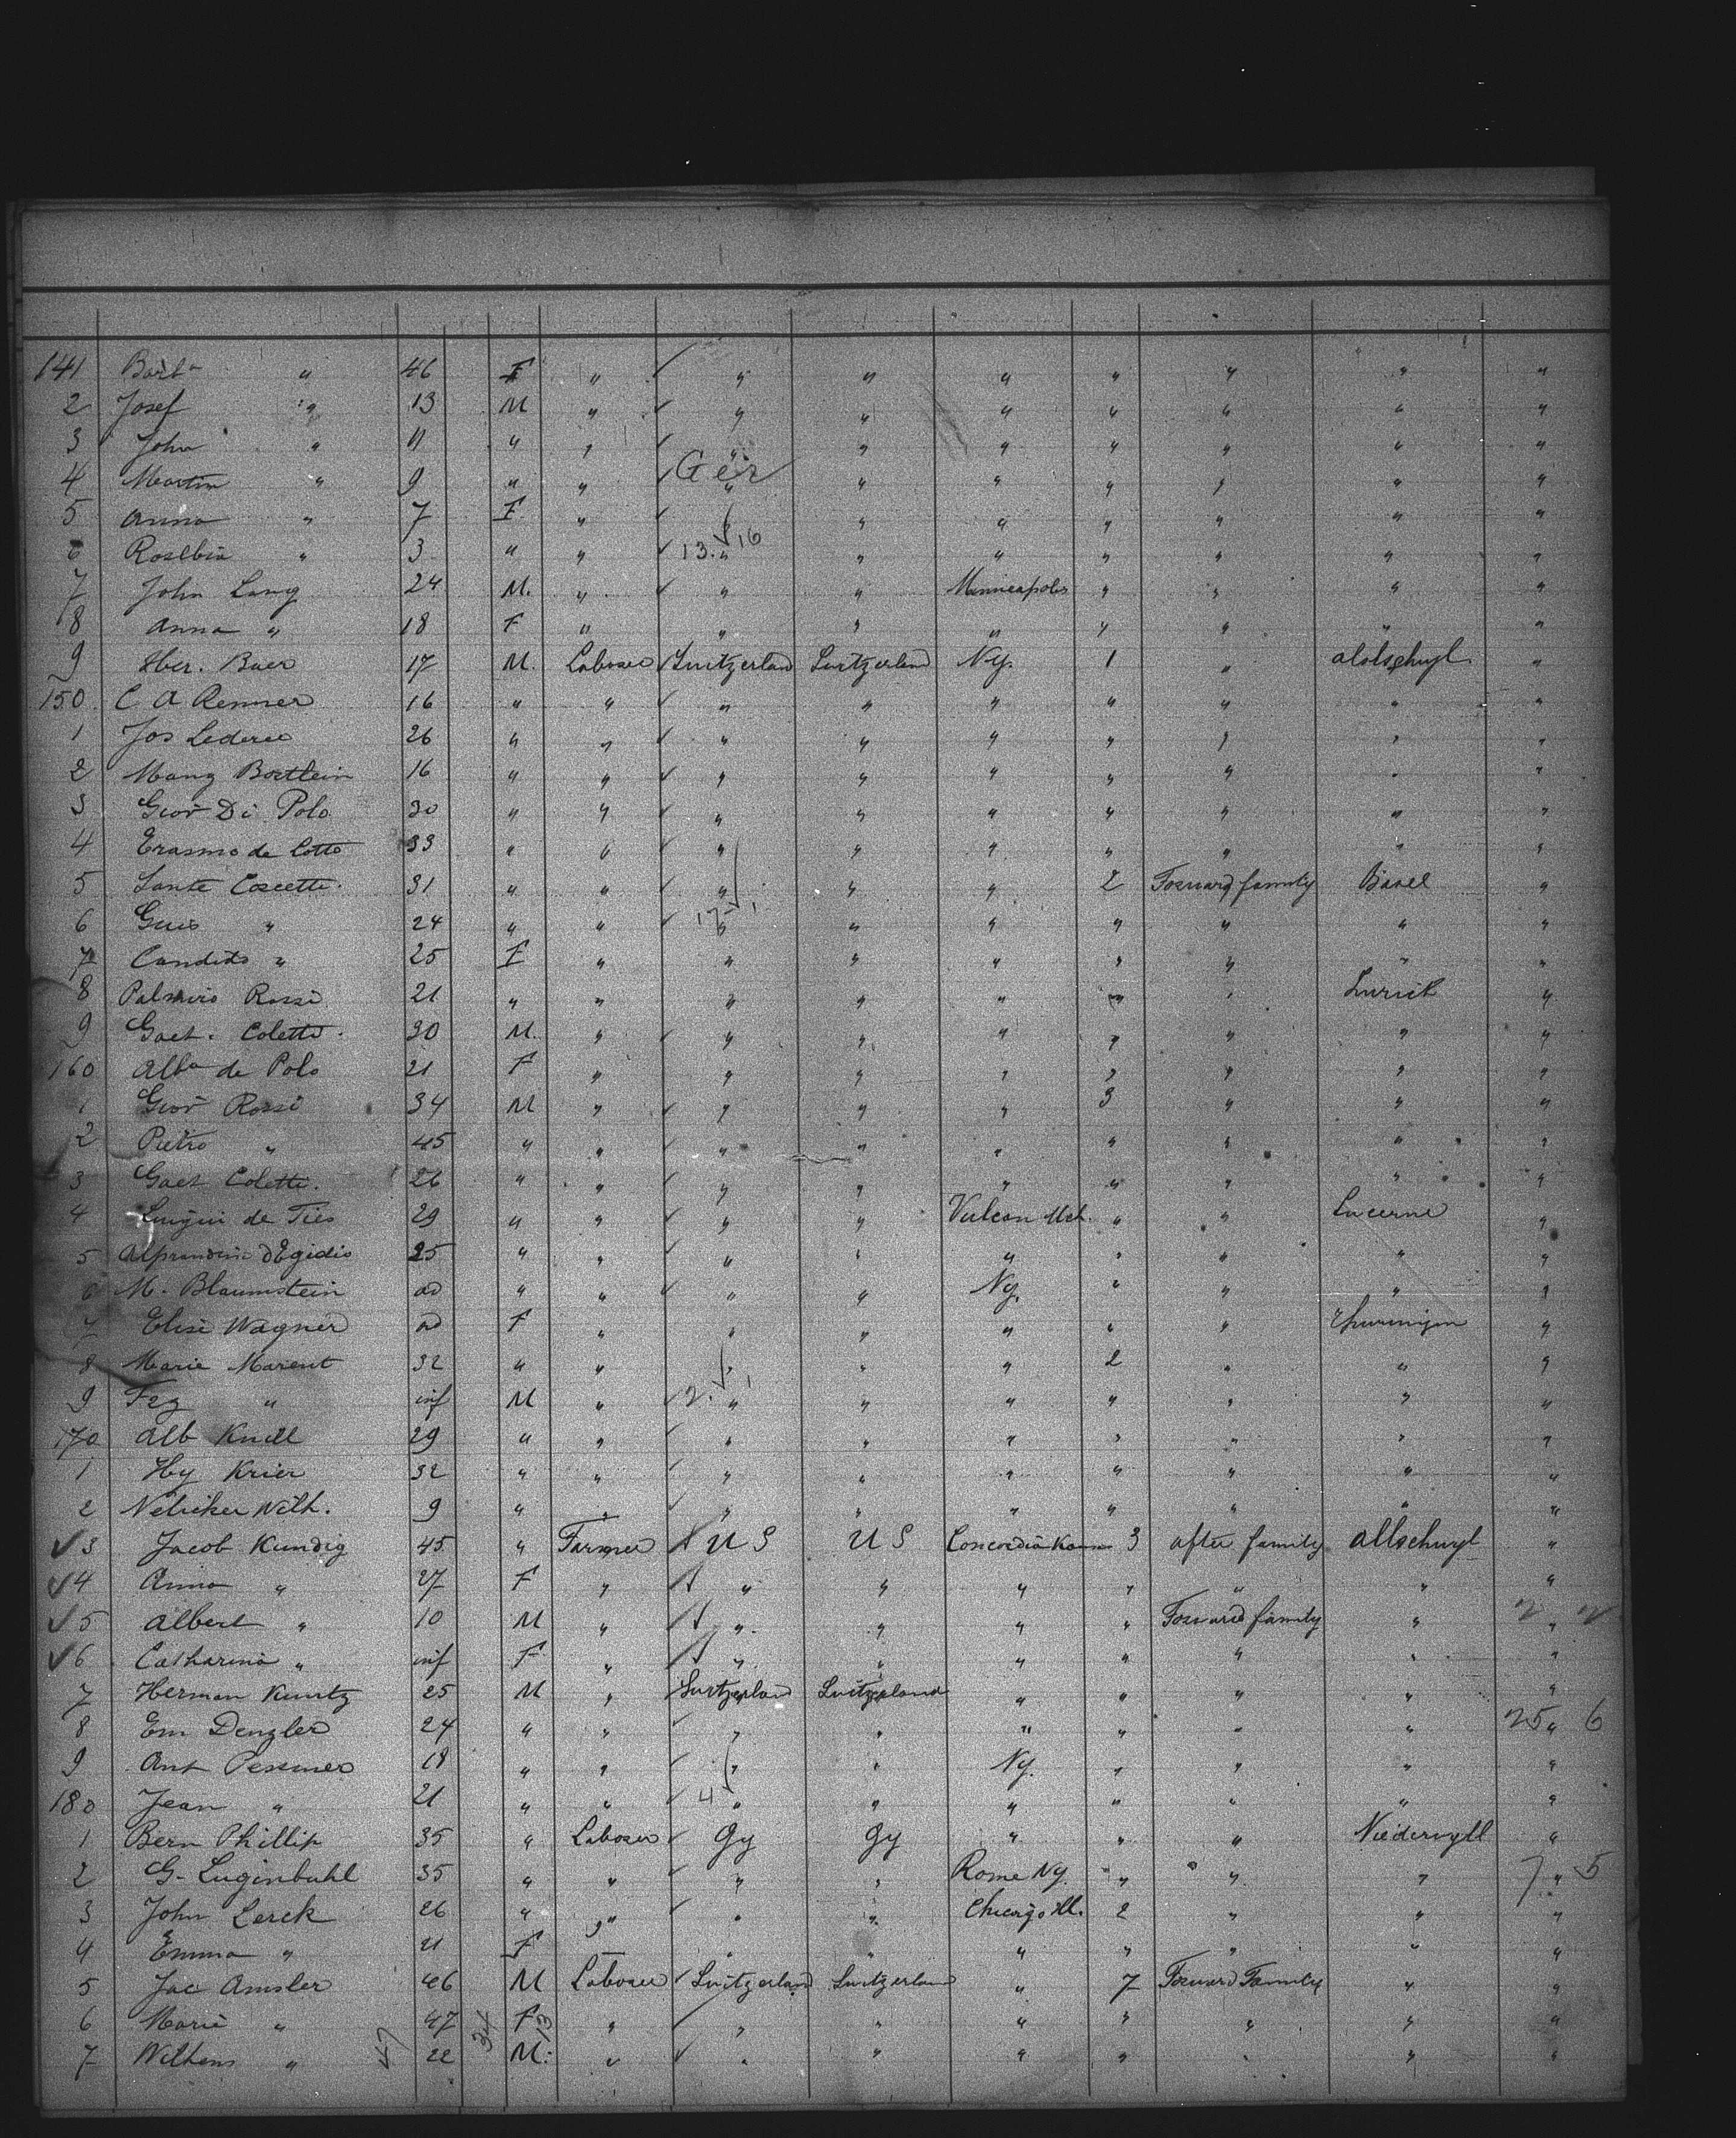 141 Barba " 46 F " " " " " " " "
2 Josef " 13 M " " " " " " " "
3 John " 11 " " " " " " " " "
4 Martin " 9 " " Ger " " " " " " "
5 Anna " 7 F " " " " " " "
6 " 3 " " 13. 16 " " " " " "
7 John Lang 24 M. " " " Minneapolis " " " "
8 Anna " 18 F " " " " " " " "
9 Her. Baer 17 M. Laborer Switzerland Switzerland Ny. 1 " "
150 C A Renner 16 " " " " " " " " "
1 Jos Lederer 26 " " " " " " " " "
2 Mang 16 " " " " " " " " "
3 Giov Di Polo 30 " " " " " " " " "
4 Erasmo de Cotto 33 " " " " " " " " "
5 Sante 31 " " " " " 2 Forward family Basel "
6 " 24 " " 17 1 " " " " " "
7 Candido " 25 F " " " " " " " "
8 Rossi 21 " " " " " " " Zurich "
9 Gaet. Coletti 30 M. " " " " " " " "
160 Alba de Polo 21 F " " " " " " " "
1 Giov Rossi 34 M " " " " 3 " " "
2 Pietro " 45 " " " " " " " " "
3 Gaet Coletti. 26 " " " " " " " " "
4 Luigui de 29 " " " " Vulcan Mch. " " Lucerne "
5 d'Egidio 25 " " " " " " " " "
6 M. Blaumstein ad " " " " Ny. " " " "
7 Elise Wagner ad F " " " " " " "
8 Marie Marent 32 " " " " " 2 " " "
9 " inf M " 2. 1 " " " " " "
170 Alb Knell 29 " " " " " " " " "
1 Hy Krier 32 " " " " " " " " "
2 Wilh. 9 " " " " " " " " "
3 Jacob Kundig 45 " Farmer U S U S Concordia Kan 3 after family Allschwyl "
4 Anna " 27 F " " " " " " " "
5 Albert " 10 M " " " " " Forward family " 2 " 2
6 Catharina " inf F " " " " " " " "
7 Herman Kuntz 25 M " Switzerland Switzerland " " " " "
8 Em Denzler 24 " " " " " " " " 25 " 6
9 Ant 18 " " " " Ny. " " " "
180 Jean " 21 " " 4 " " " " " " "
1 Bern Phillip 35 " Laborer Gy Gy " " " "
2 G. Luginbuhl 35 " " " " Rome Ny. " " " 7 " 5
3 John Lerck 26 " " " " Chicago Ill. 2 " " "
4 Emma " 21 F " " " " " " "
5 Jac Amsler 46 M Laborer Switzerland Switzerland " 7 Forward Family " "
6 Marie " 47 F " " " " " " " "
7 " 22 M. " " " " " " "
47 34 13